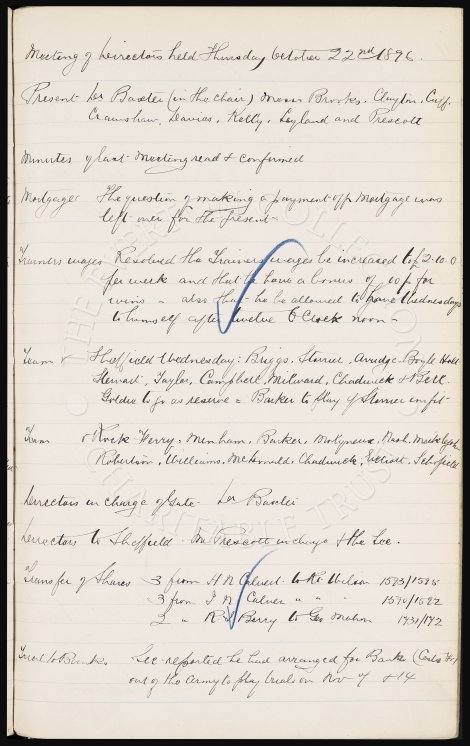 Meeting of Directors held Thursday October 22nd 1896.
Present Dr Baxter (in the chair) Messrs Brooks. Clayton, Cuff,
Crawshaw, Davies, Kelly, Leyland and Prescott
Minutes of last Meeting read & confirmed
Mortgage The question of making a payment off Mortgage was
left over for the present -
Trainers wages Resolved the Trainers wages be increased to £2-10-0
per week and that he have a bonus of 10/- for
wins - also that he be allowed to have Wednesdays
to himself after twelve O Clock noon -
Team v Sheffield Wednesday: Briggs, Storrier, Arridge, Boyle Holt
Stewart, Taylor, Campbell, Milward, Chadwick & Bell.
Goldie to go as reserve - Barker to play if Storrier unfit -
Team v Rock Ferry. Menham, Barker, Molyneux, Nash. Meiklejohn
Robertson, Williams, McDonald, Chadwick, Elliott, Schofield
Directors in charge of Gate - Dr Baxter
Directors to Sheffield - Mr Prescott in charge & the Sec.
Transfer of Shares 3 from H N Calvert to Wilson 1593/1595
3 from " " 1590/1592
2 " Berry to Geo Mahon
Trial to Banks. Sec reported he had arranged for Banks
out of the Army to play trials on Nov 7 & 14
THE EVERTON COLLECTION
CHARITABLE TRUST